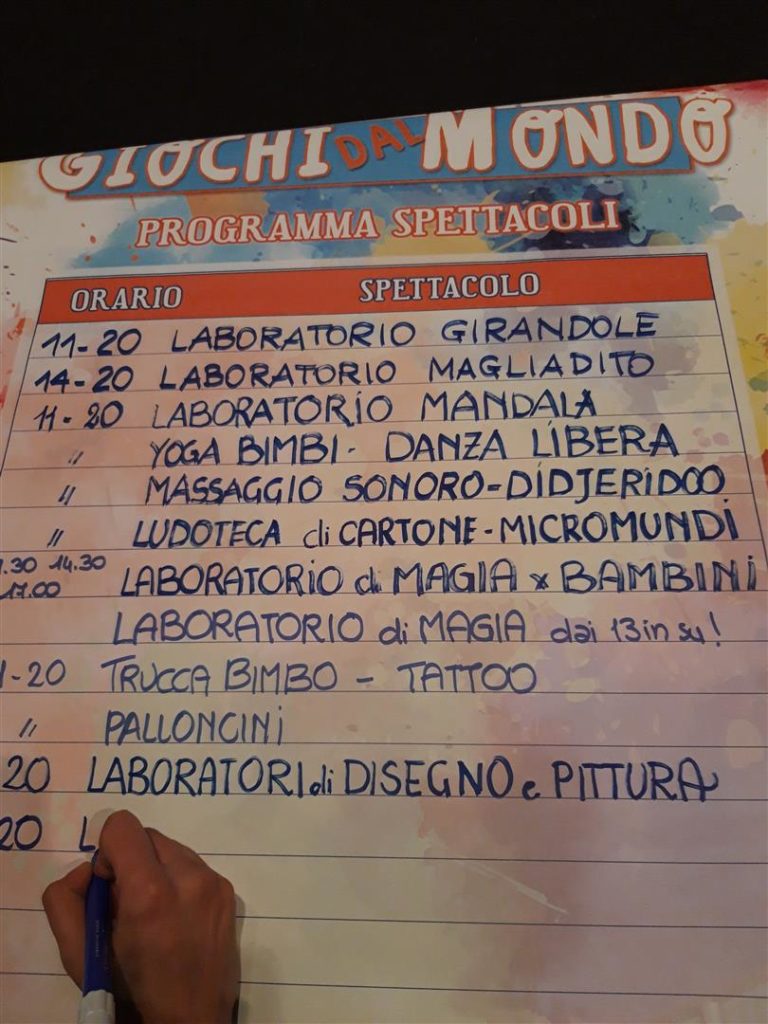 GIOCHI DAL MONDO
PROGRAMMA SPETTACOLI
ORARIO SPETTACOLO
11-20 LABORATORIO GIRANDOLE
14-20 LABORATORIO MAGLIADITO
11-20 LABORATORIO MANDALA
" YOGA BIMBI - DANZA LIBERA
" MASSAGGIO SONORO - DIDJERIDOO
" LUDOTECA di CARTONE - MICROMUNDI
.30 14.30
17.00 LABORATORIO di MAGIA x BAMBINI
LABORATORIO di MAGIA dai 13 in su!
1-20 TRUCCA BIMBO - TATTOO
" PALLONCINI
20 LABORATORI di DISEGNO e PITTURA
20 L